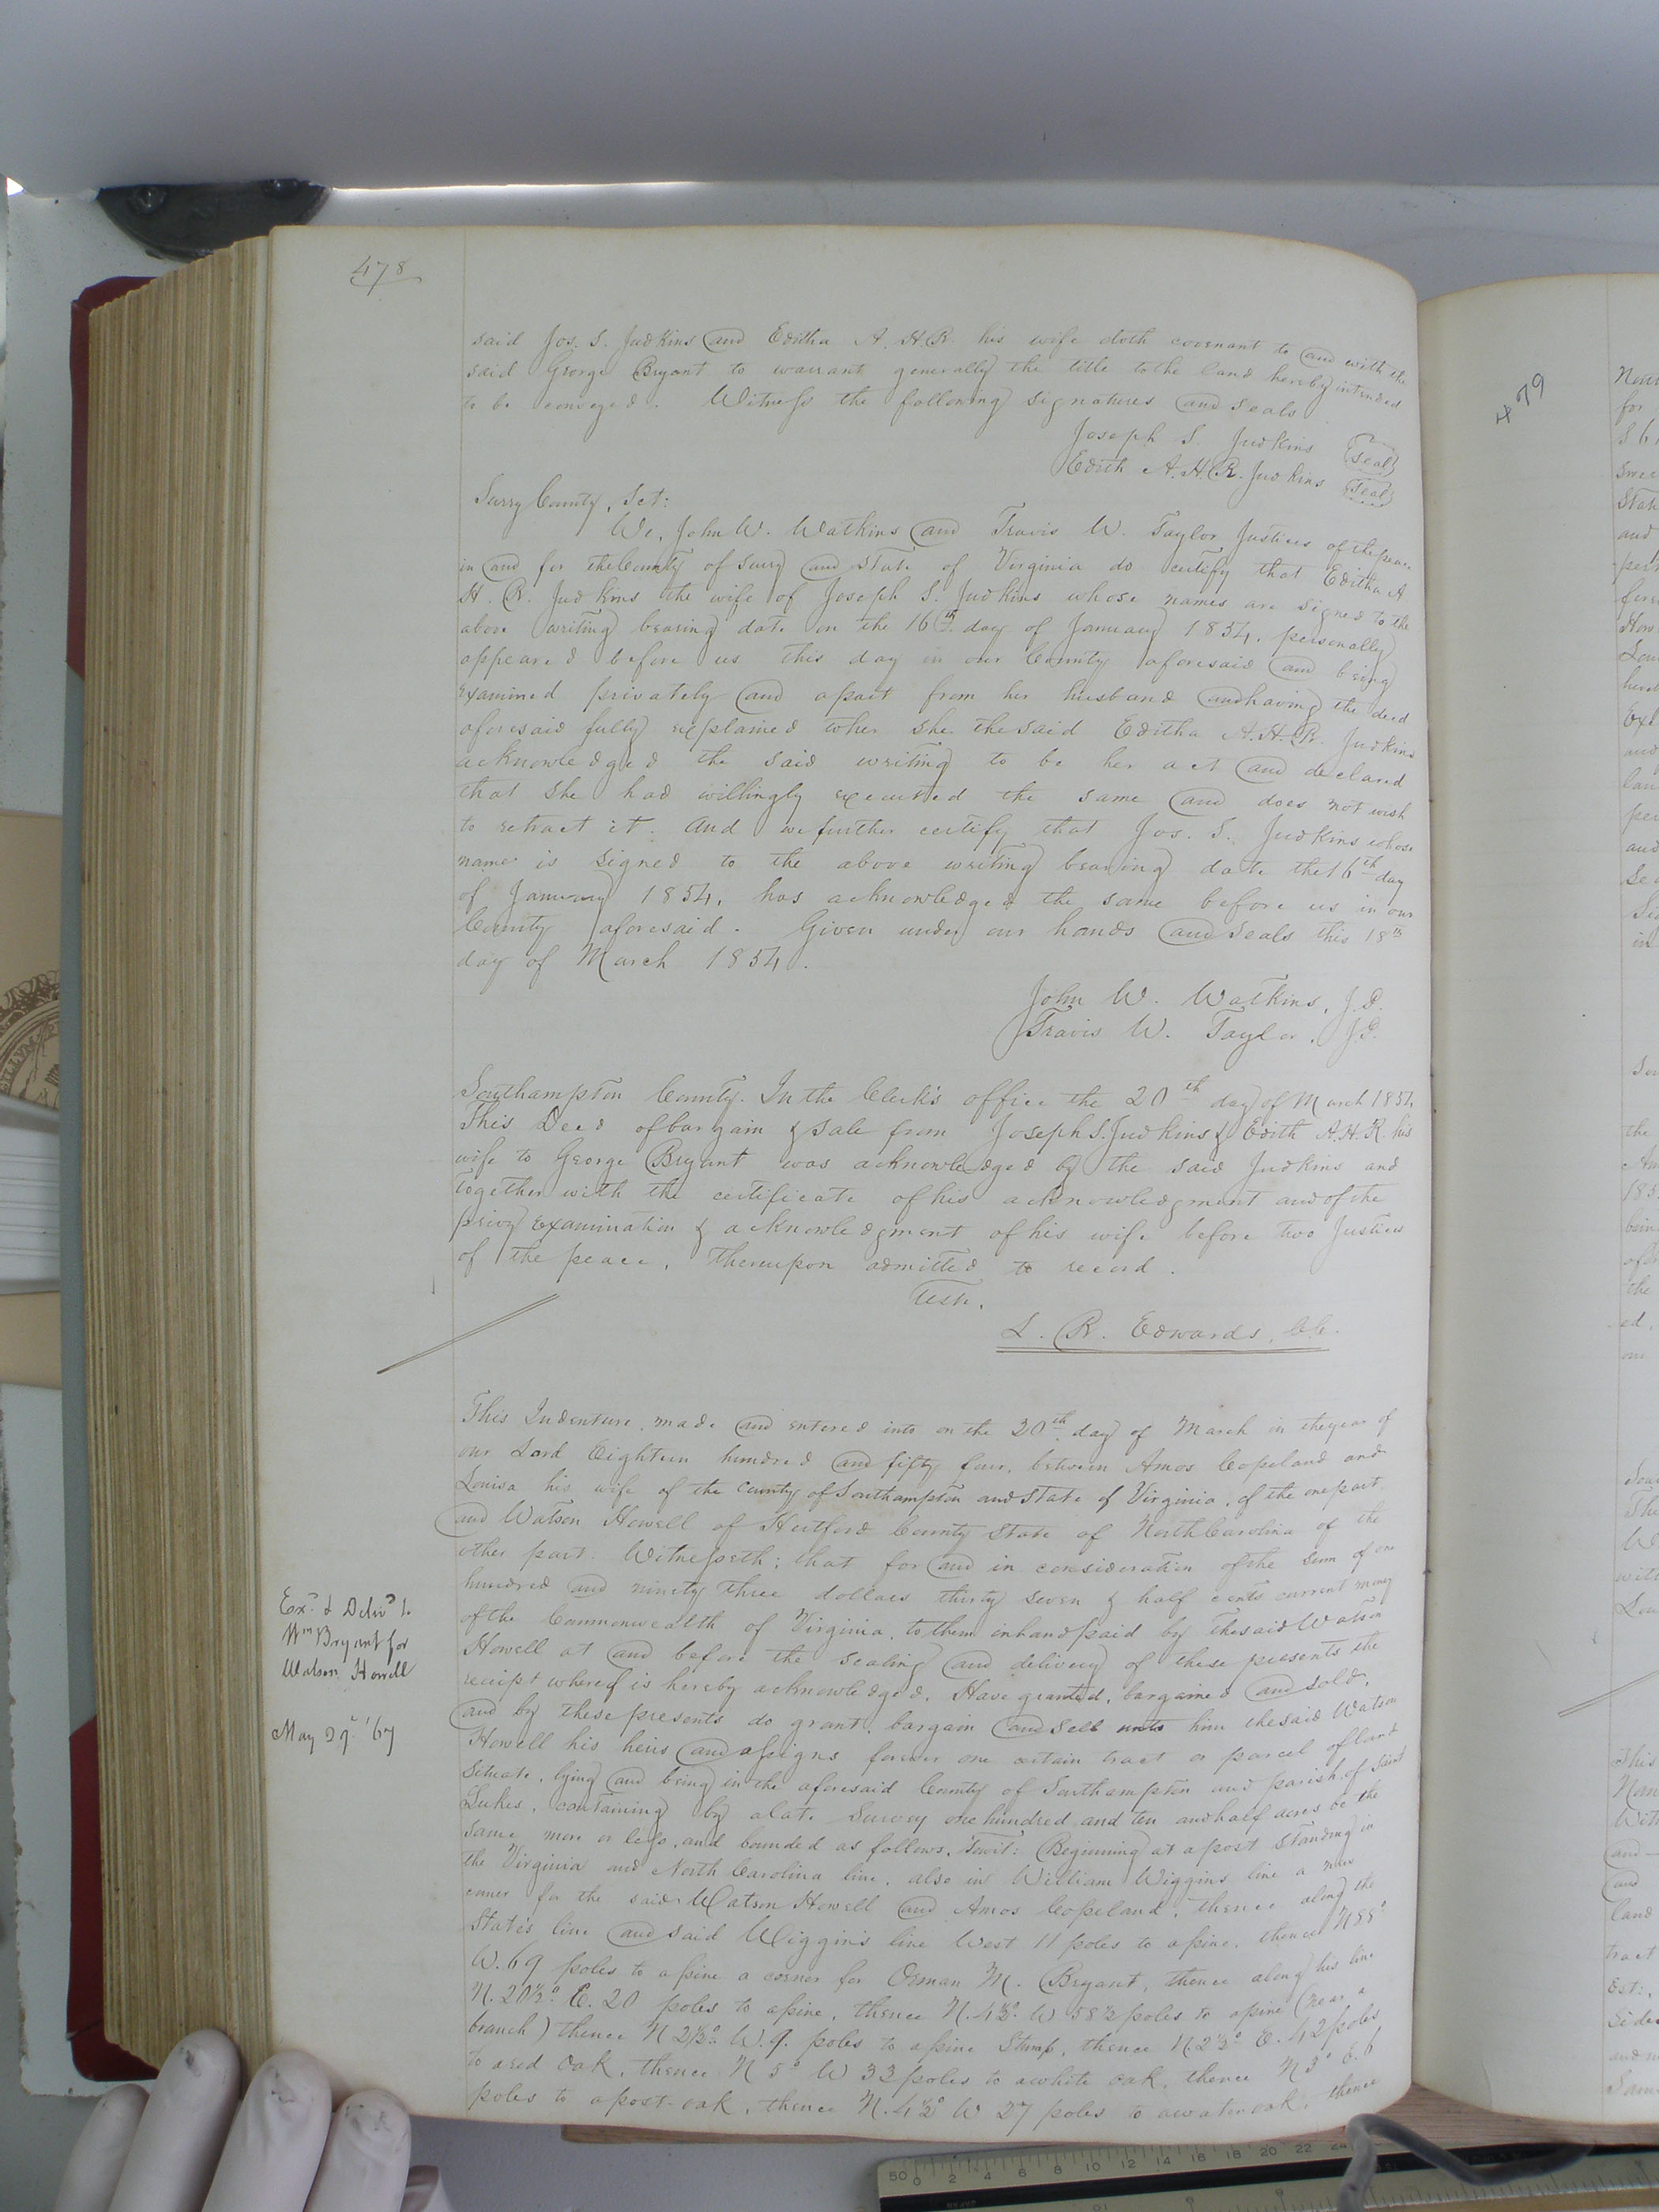 478
said Jos. S. Judkins and Editha A. H. R. his wife doth covenant to and with the
said George Bryant to warrant generally the title to the land hereby intended
to be conveyed. Witness the following signatures and seals
Joseph S. Judkins (seal)
Edith A. H. R. Judkins (seal)
Surry County, Sct:
We, John W. Watkins and Travis W. Taylor Justices of the peace
in and for the County of Surry and State of Virginia do certify that Editha A
H. R. Judkins the wife of Joseph S. Judkins whose names are signed to the
above writing bearing date on the 16th day of January 1854, personally
appeared before us this day in our County aforesaid and being
examined privately and apart from her husband and having the deed
aforesaid fully explained to her she the said Editha A. H. R. Judkins
acknowledged the said writing to be her act and declared
that she had willingly executed the same and does not wish
to retract it. And we further certify that Jos. S. Judkins whose
name is signed to the above writing bearing date the 16th day
of January 1854, has acknowledged the same before us in our
County aforesaid. Given under our hands and seals this 18th
day of March 1854.
John W. Watkins, J.P.
Travis W. Taylor, J.P.
Southampton County. In the Clerk's office the 20th day of March 1854
This Deed of bargain & sale from Joseph S. Judkins & Edith A. H. R. his
wife to George Bryant was acknowledged by the said Judkins and
together with the certificate of his acknowledgment and of the
privy examination & acknowledgment of his wife before two Justices
of the peace, thereupon admitted to record.
Teste,
L. R. Edwards, CC.
This Indenture, made and entered into on the 20th day of March in the year of
our Lord Eighteen hundred and fifty four, between Amos Copeland and
Louisa his wife of the County of Southampton and State of Virginia, of the one part,
and Watson Howell of Hertford County State of North Carolina of the
other part: Witnesseth; that for and in consideration of the sum of one
hundred and ninety three dollars thirty seven & half cents current money
of the Commonwealth of Virginia, to them in hand paid by the said Watson
Howell at and before the sealing and delivery of these presents the
receipt whereof is hereby acknowledged, Have granted, bargained and sold,
and by these presents do grant, bargain and sell unto him the said Watson
Howell his heirs and assigns forever one certain tract or parcel of land
situate, lying and being in the aforesaid County of Southampton and parish of Saint
Lukes, containing by a late Survey one hundred and ten and half acres be the
same more or less, and bounded as follows, towit: Beginning at a post standing in
the Virginia and North Carolina line, also in William Wiggins line a new
corner for the said Watson Howell and Amos Copeland, thence along the
State's line and said Wiggin's line West 11 poles to a pine, thence N 88°
W. 69 poles to a pine a corner for Orman M. Bryant, thence along his line
N. 20½° E. 20 poles to a pine, thence N. 4½° W 58½ poles to a pine (near a
branch) thence N 2½° W. 9. poles to a pine Stump, thence N. 2½° E. 42 poles
to a red Oak, thence N 5° W 33 poles to a white oak, thence N 3° E. 6
poles to a post-oak, thence N. 4½° W 27 poles to a water oak, thence
Exd & Delivd to
Wm Bryant for
Watson Howell
May 29 '67
479